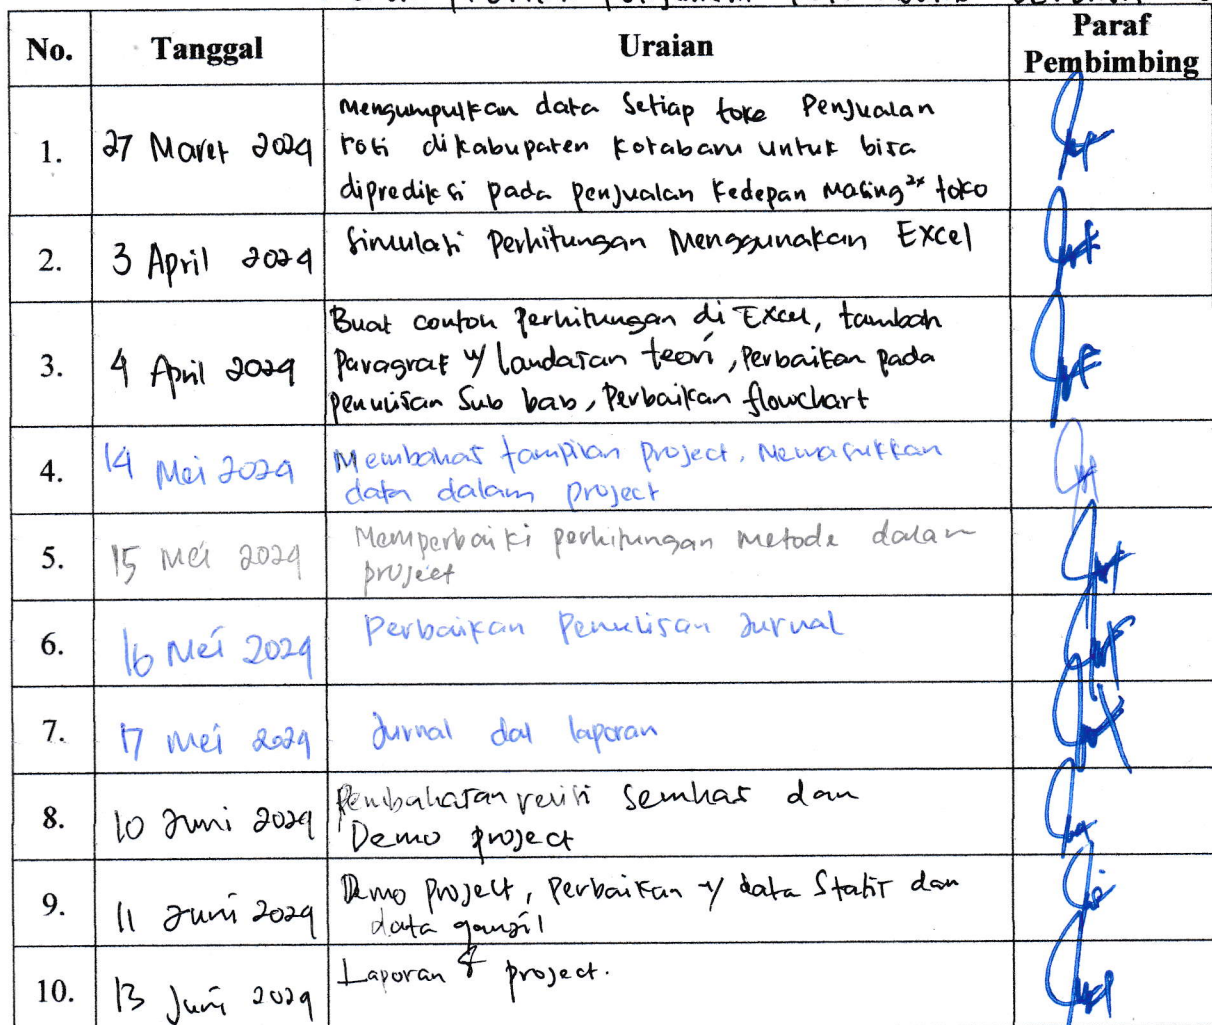 No. Tanggal Uraian Paraf
Pembimbing
1. 27 Maret 2024
Mengumpulkan data Setiap toko Penjualan
roti dikabupaten kotabaru untuk bisa
diprediksi pada penjualan kedepan masing2x toko
2. 3 April 2024 Simulasi Perhitungan Menggunakan Excel
3. 4 April 2024
Buat contoh perhitungan di Excel, tambah
Paragraf y/ landasan teori, Perbaikan pada
penulisan Sub bab, Perbaikan flowchart
4. 14 Mei 2024
Membahas tampilan project, Memasukkan
data dalam project
5. 15 Mei 2024
Memperbaiki perhitungan metode dalam
project
6. 16 Mei 2024 Perbaikan Penulisan Jurnal
7. 17 Mei 2024 Jurnal dal laporan
8. 10 Juni 2024
Pembahasan revisi Semhas dan
Demo project
9. 11 Juni 2024
Demo project, Perbaikan y/ data Statis dan
data ganjil
10. 13 Juni 2024 Laporan & project.